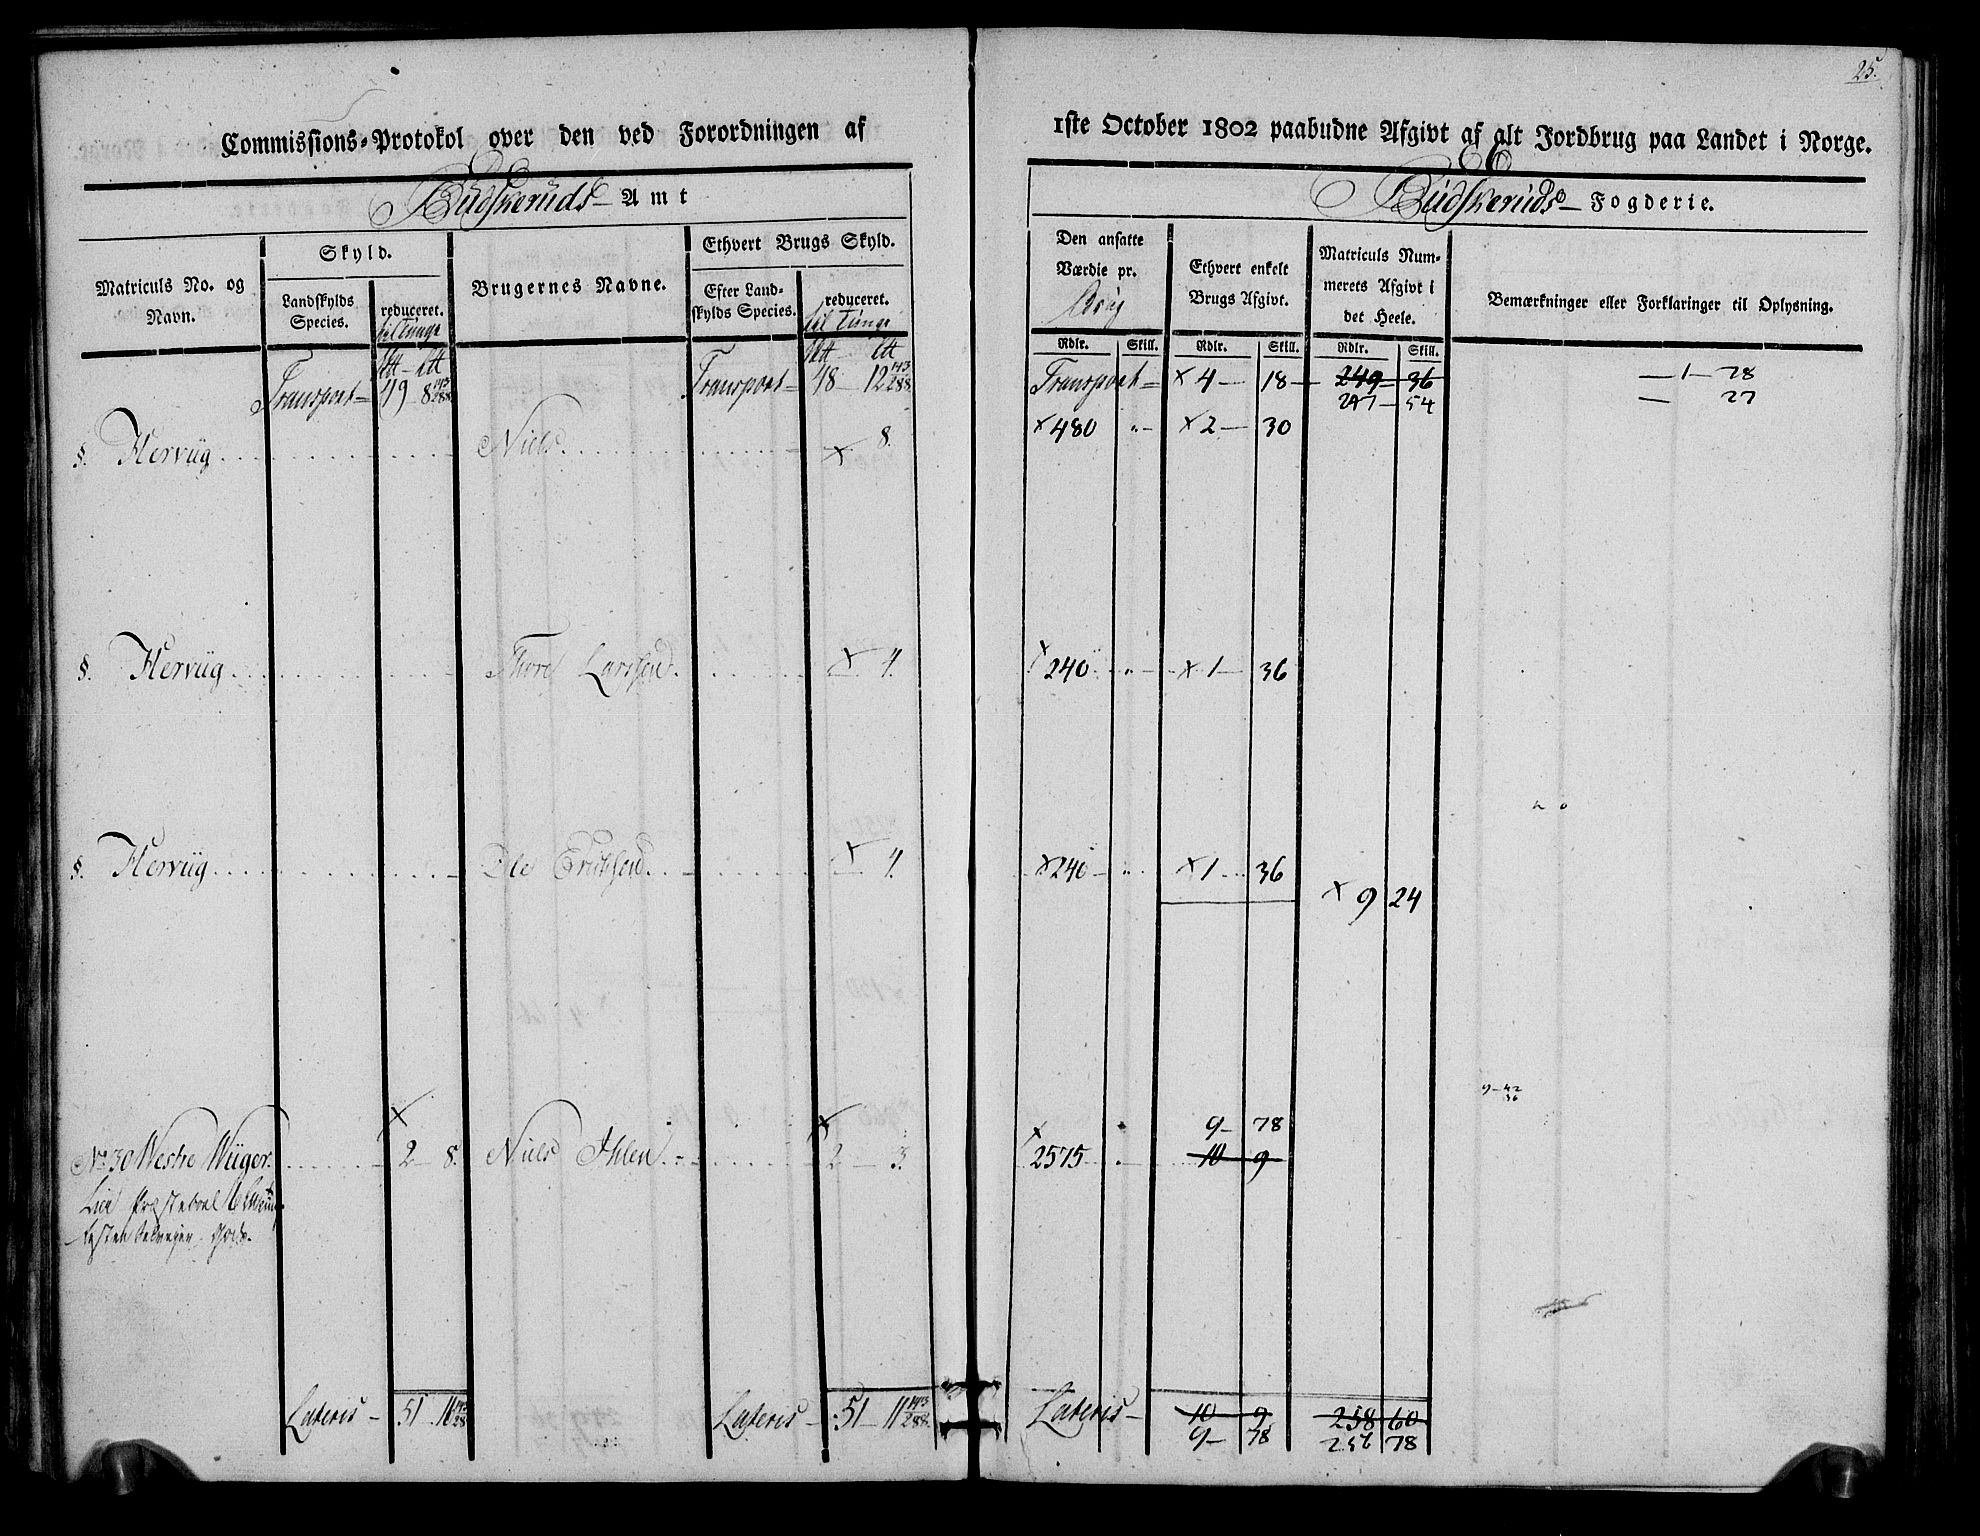 25.
Commissions-Protokol over den ved Forordningen af 1ste October 1802 paabudne Afgivt af alt Jordbrug paa Landet i Norge.
Budskeruds Amt
Budskeruds Fogderie.
Matriculs No. og Navn.
Skyld.
Landskylds Species.
reduceret. til Tunge
Brugernes Navne.
Ethvert Brugs Skyld.
Efter Landskylds Species.
reduceret. til Tunge
Den ansatte Værdie pr. Brug
Ethvert enkelt Brugs Afgivt.
Matriculs Nummerets Afgivt i det Heele.
Bemærkninger eller Forklaringer til Oplysning.
Rdlr. Skill. Rdlr. Skill. Rdlr. Skill.
Transport 49 8 143/288 Transport 48 12 143/288 Transport × 4 18 249 36 1 78
247 54 27
§. Hervüg Niels × 8. × 480 × 2 30
§. Hervüg Thore Larssen × 4. × 240 × 1 36
§. Hervüg Ole Erichsen × 4. × 240 × 1 36
× 9 24
9 42
36
9 78
No 30 Westre Wüger × 2 8. Niels Ihlen × 2 3. × 2575 10 9
Lier Præsteboel
Gods.
Lateris 51 11 143/288 Lateris 51 11 143/288 Lateris 10 9 258 60
9 78 256 78